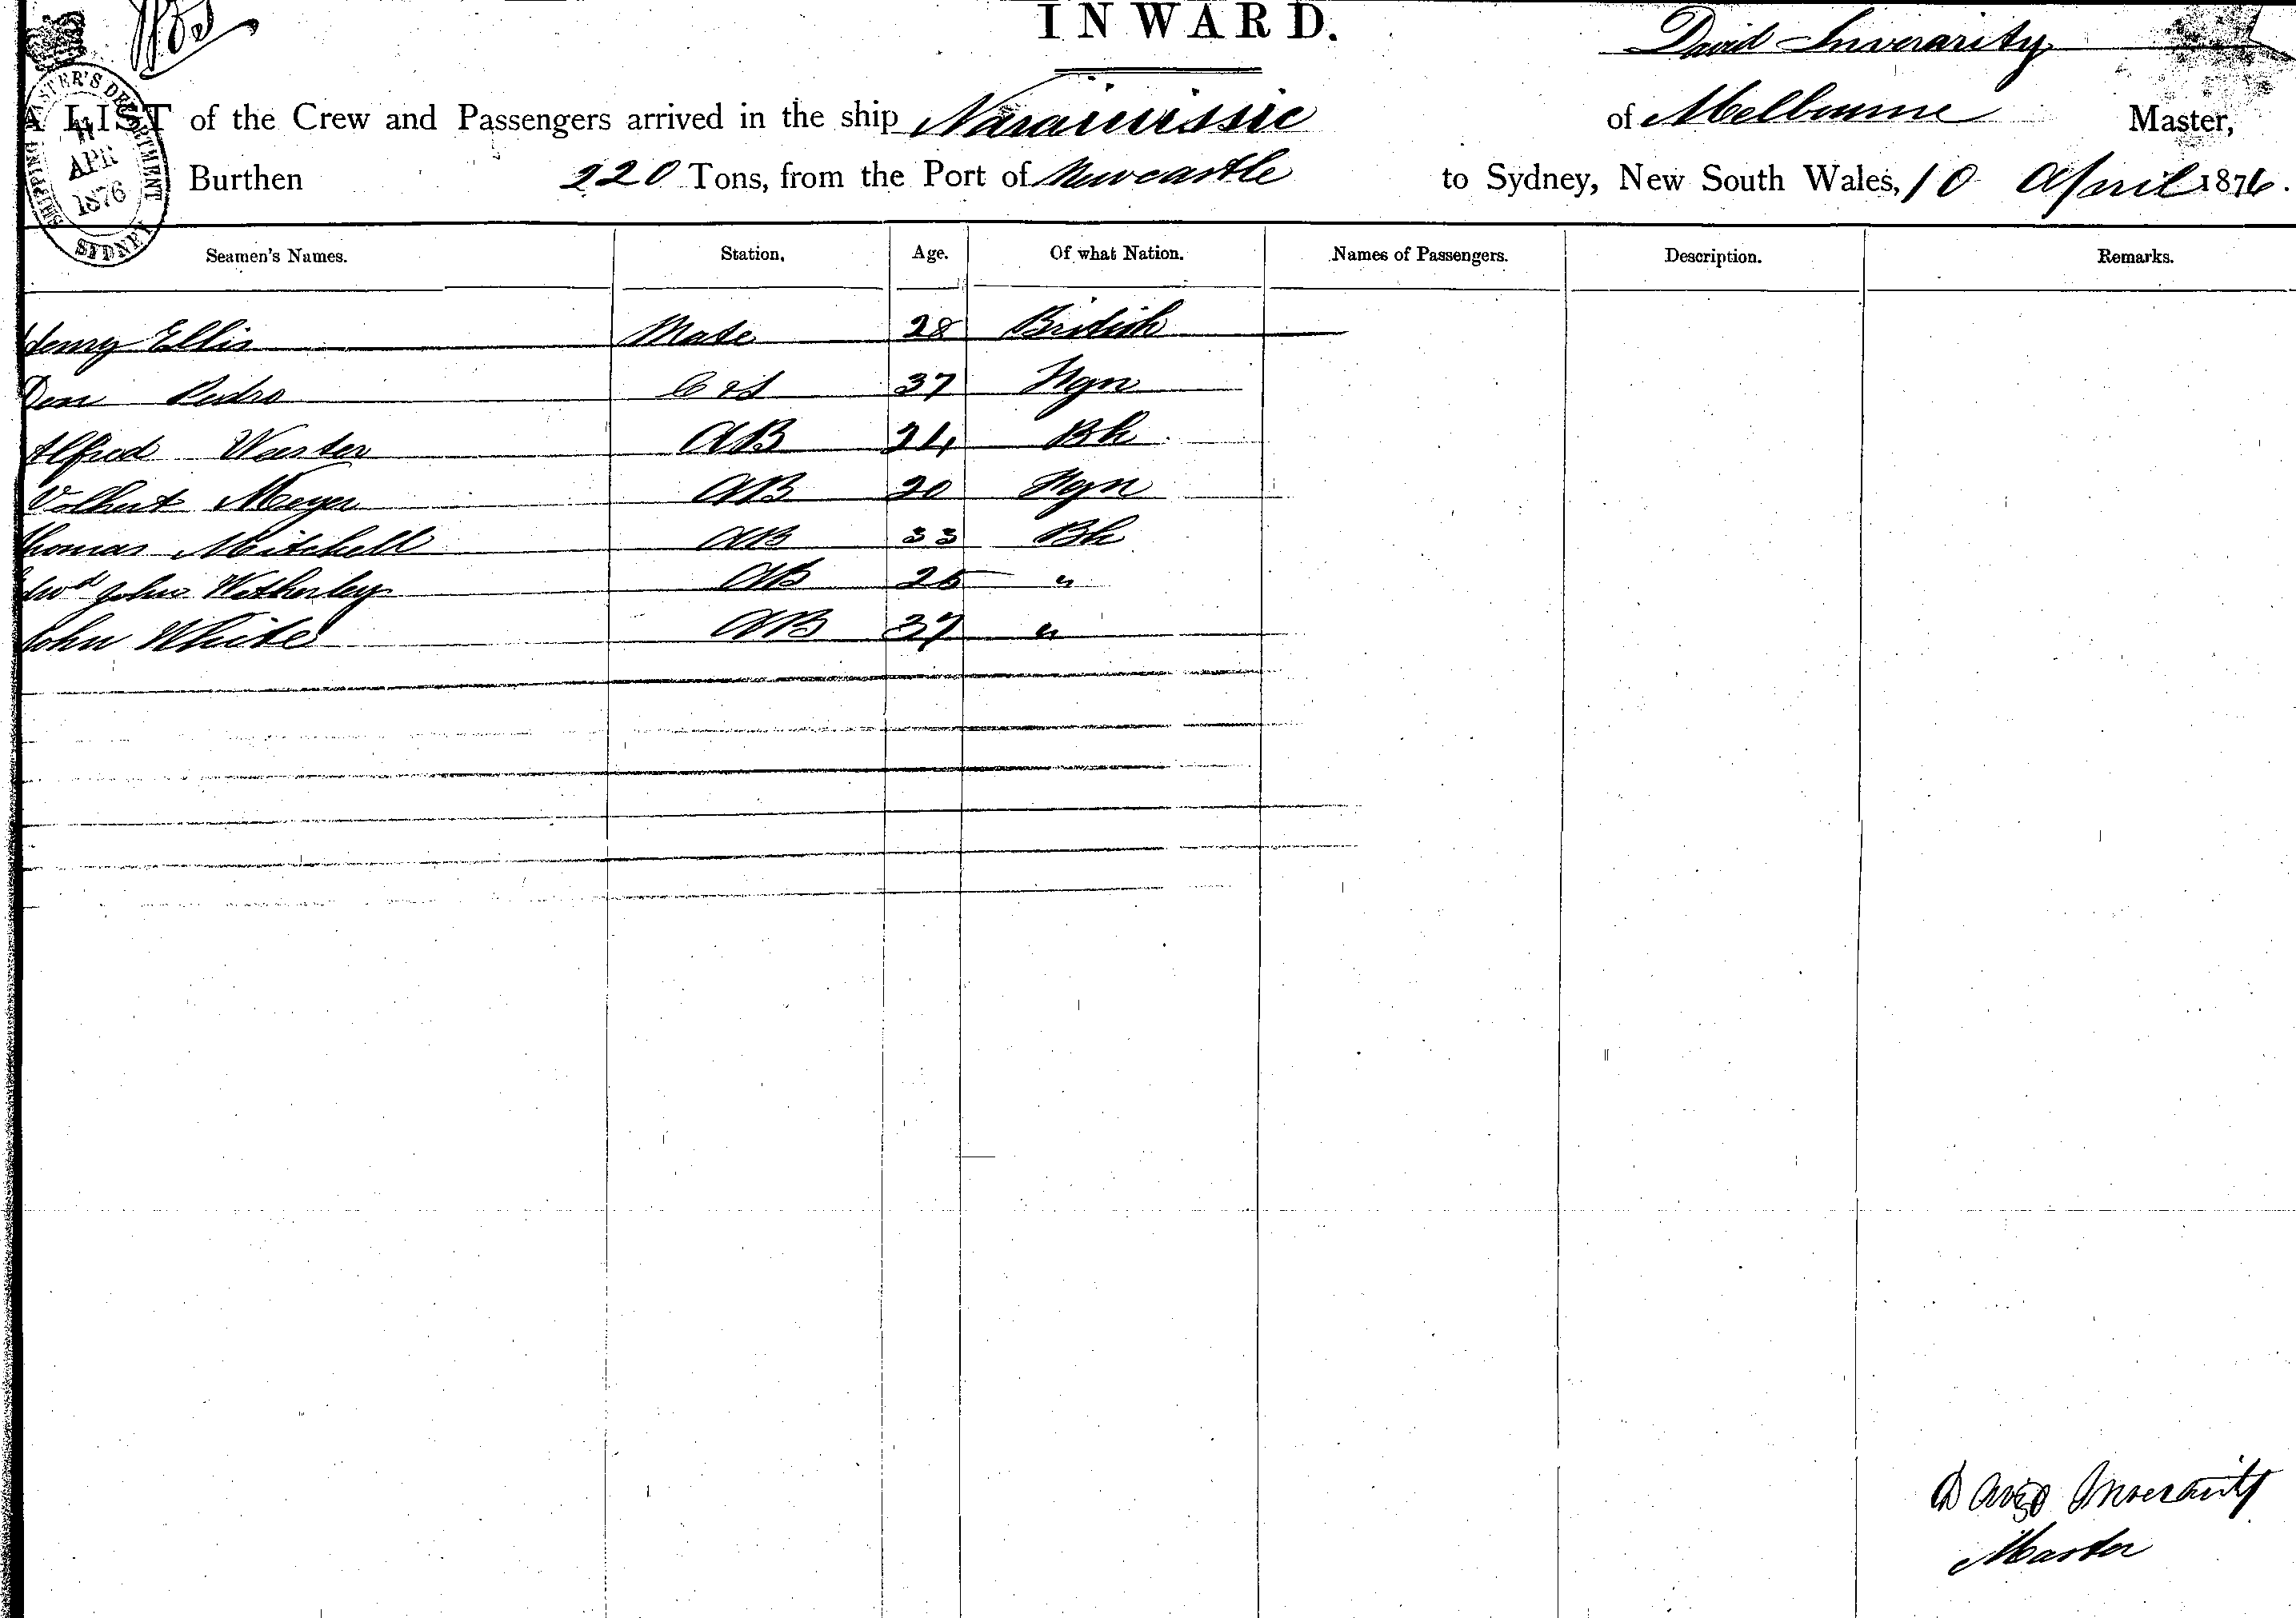 INWARD.
David Inverarity
A LIST of the Crew and Passengers arrived in the ship Naramissic of Melbourne Master,
Burthen 220 Tons, from the Port of Newcastle to Sydney, New South Wales, 10 April 1876.
SHIPPING MASTER'S DEPARTMENT
11
APR
1876
SYDNEY
Seamen's Names. Station. Age. Of what Nation. Names of Passengers. Description. Remarks.
Henry Ellis Mate 28 British
Don Pedro C & S 37 Fgn
Alfred Wester AB 24 Bh
Volhert Meyer AB 20 Fgn
Thomas Mitchell AB 33 Bh
Edwd John Witherley AB 25 "
John White AB 37 "
David Inverarity
Master